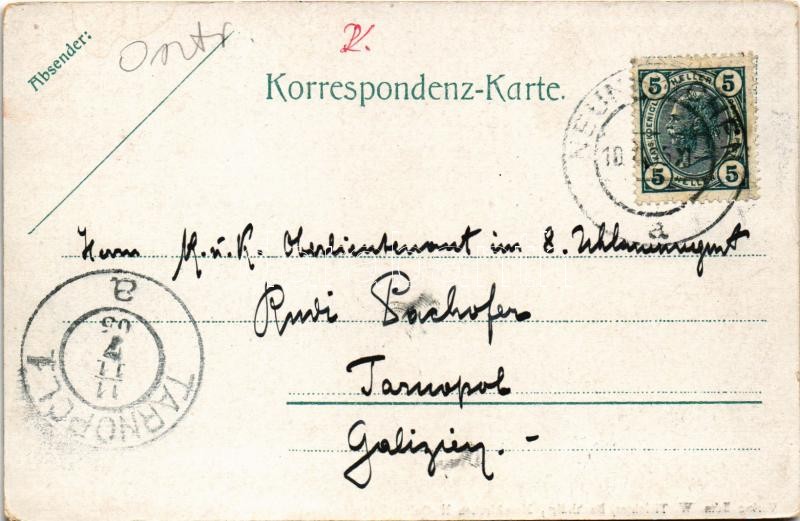 Absender:
Korrespondenz-Karte.
5 HELLER 5
5 HELLER 5
NEUN
10
a
Herrn K. u. K. Oberlieutenant im 8. Uhlanenregmt
Rudi Pachofer
Tarnopol
Galizien. -
TARNOPOL 1
11
a